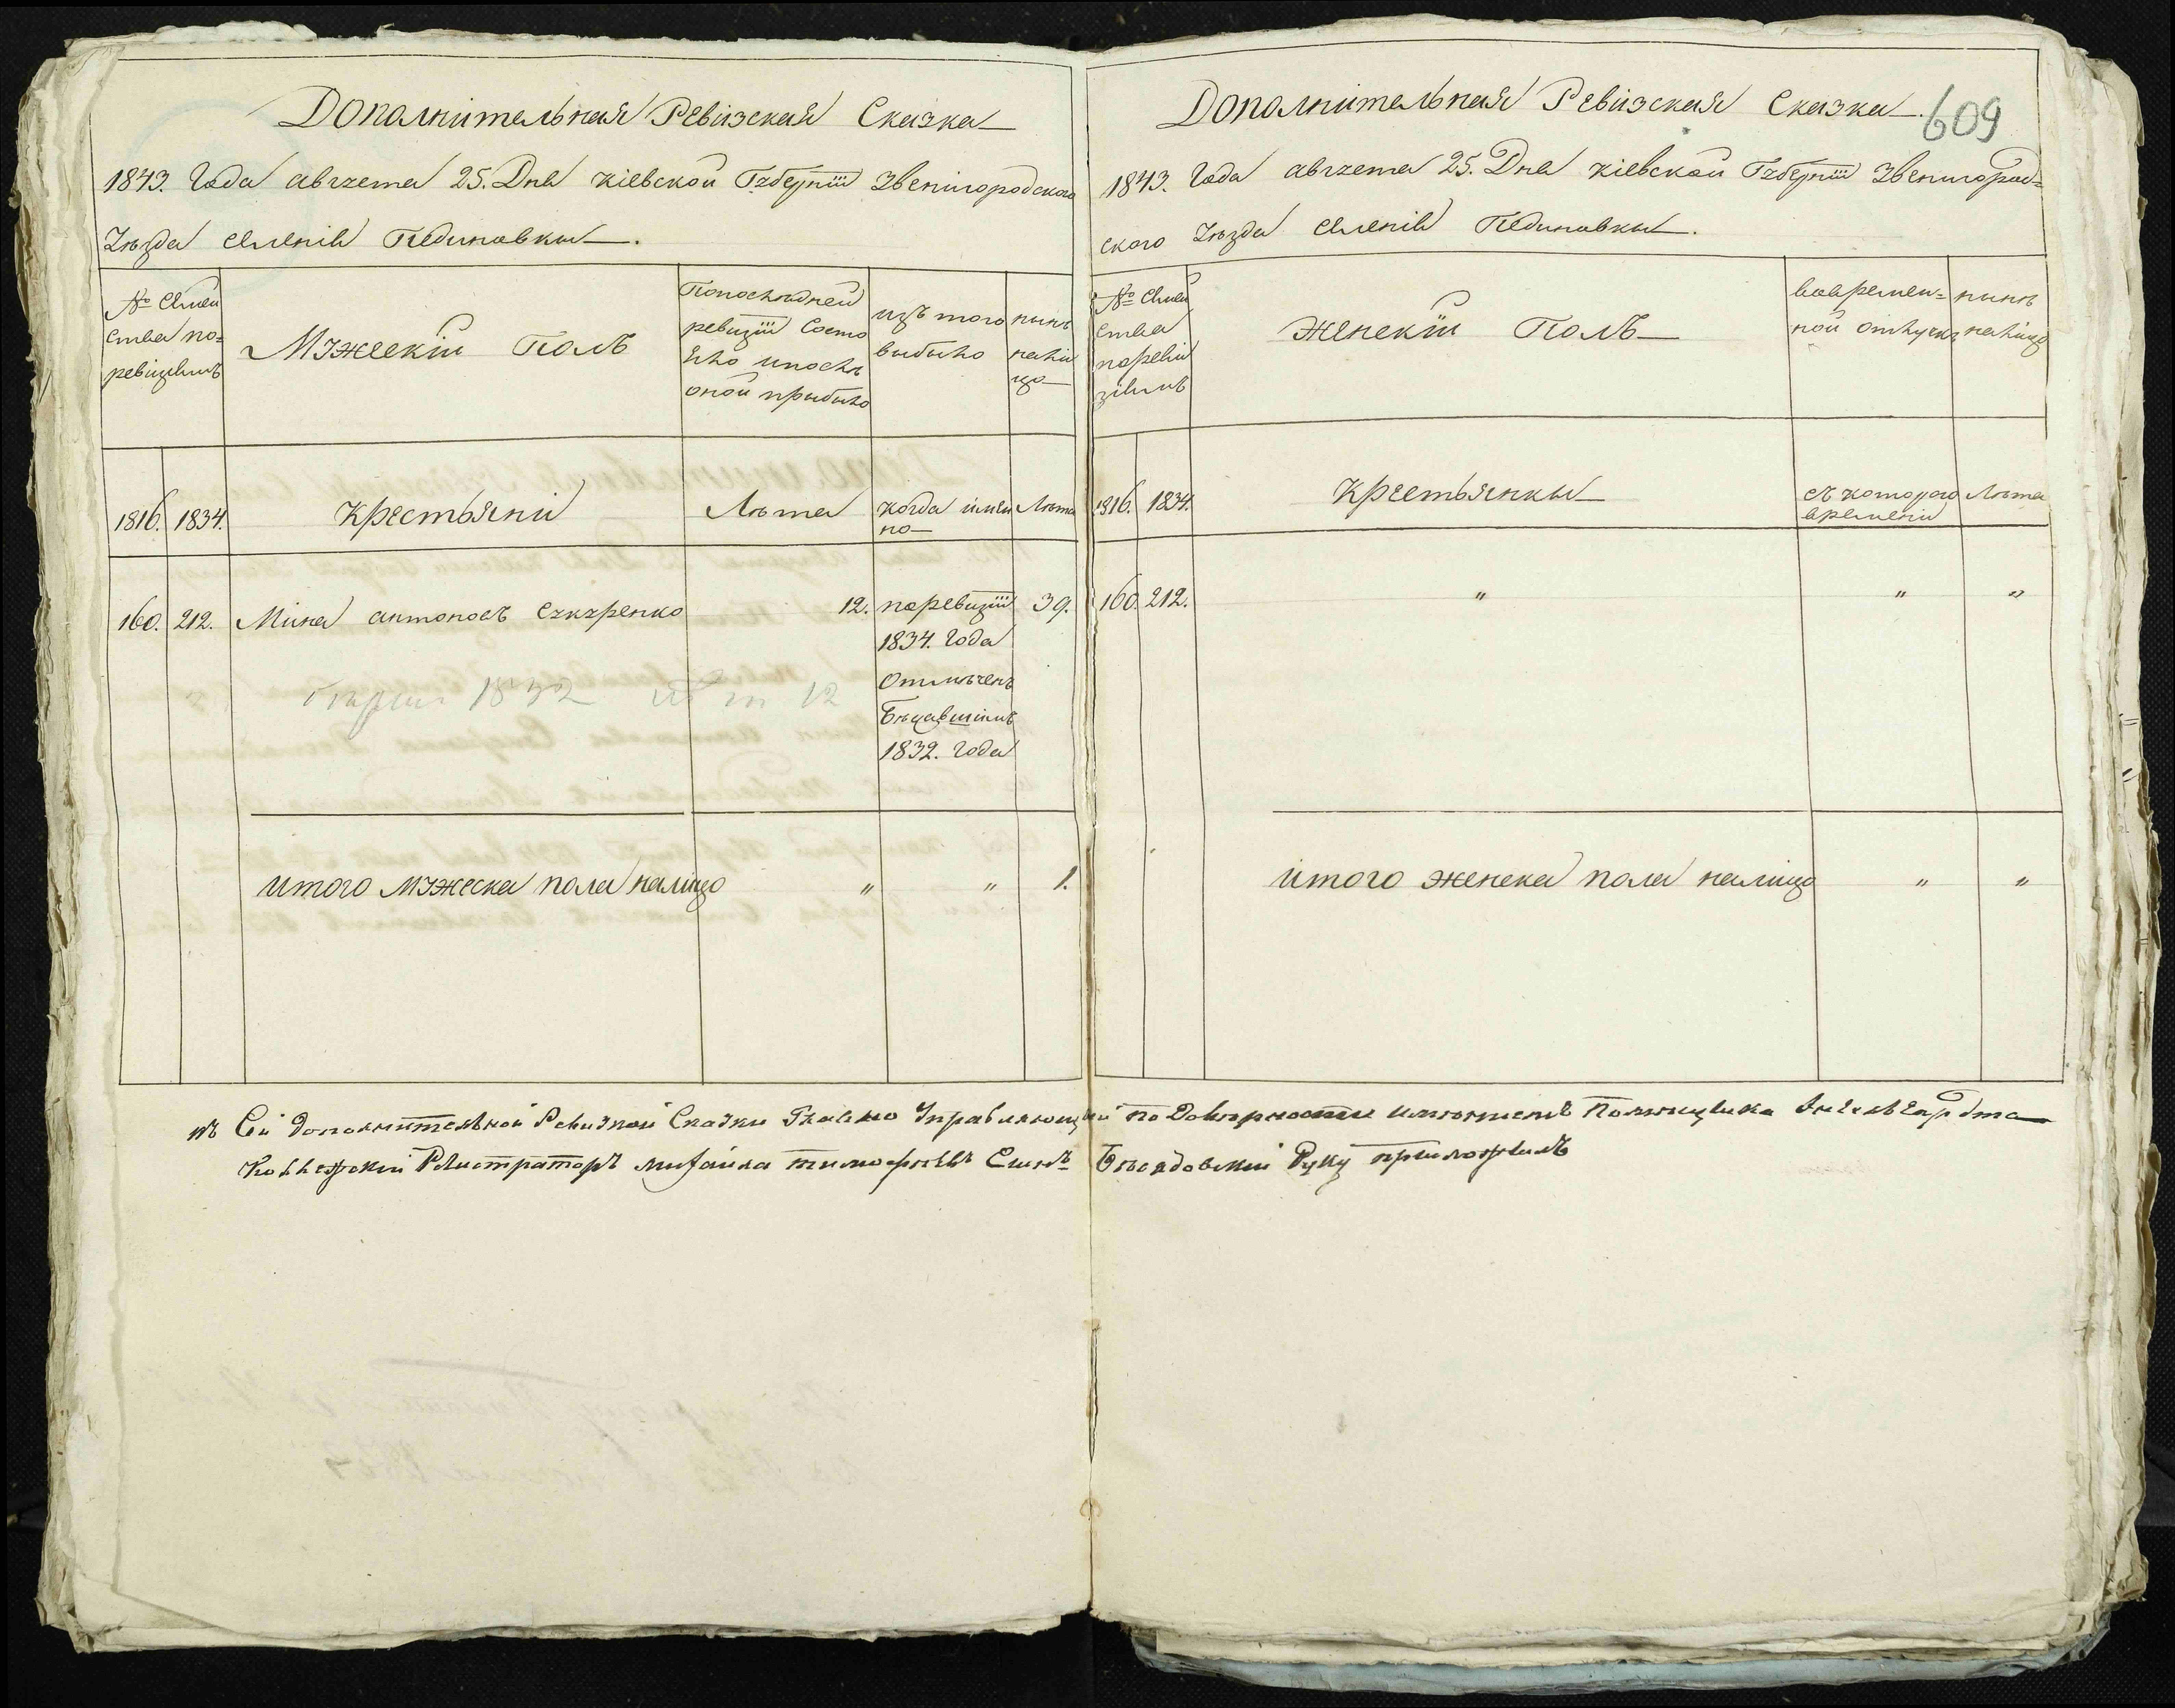 Дополнительная Ревизская Сказка
1843. Года августа 25. Дня Кіевской Губерніи Звенигородского
Уѣзда Селенія Пединовки.
№ Семей
ства по
ревизіямъ
Мужескій Полъ
По последней
ревизіи Состо
яло и послѣ
оной прибыло
изъ того
выбыло
нынѣ
на ли
цо
1816. 1834.
Крестьяни
Лѣта
когда имян
но
Лѣта
160. 212. Мина Антоновъ Сукуренко 12. по ревизіи 39.
1834. Года
Отмѣченъ
Бѣжавшимъ
1832. Года
1832 12
итого мужеска пола налицо " " 1.
Дополнительная Ревизская Сказка
609
1843. Года августа 25. Дня Кіевской Губерніи Звенигород=
ского Уѣзда Селенія Пединовки.
№ Семей
ства
по реви
зіямъ
Женскій Полъ
во времен=
ной отлучкѣ
нынѣ
на лицо
1816. 1834.
Крестьянки
съ которого
времени
Лѣта
160. 212. " " "
итого женска пола налицо " "
къ Сей дополнительной Ревизкой Сказки Главно Управляющий по Доверности имениемъ Помещика Энгельгардта
Коллежский Регистраторъ Михайла Тимофеевъ Сынъ Беседовский Руку приложилъ